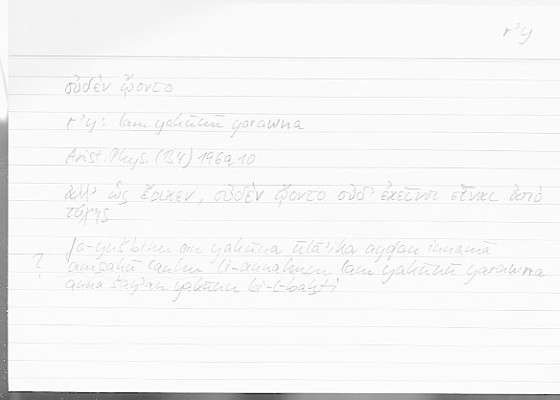 rʾy
οὐδὲν ᾤοντο
rʾy: lam yakūnū yarawna
Arist. Phys. (B4) 196a10
ἀλλ' ὡς ἔοικεν, οὐδὲν ᾤοντο οὐδ' ἐκεῖνοι εἶναι ἀπὸ
τύχης
fa-yušbihu an yakūna ūlāʾika ayḍan innamā
? li-annahum lam yakūnū yarawna
anna šayʾan yakūnu bi-l-baḫti